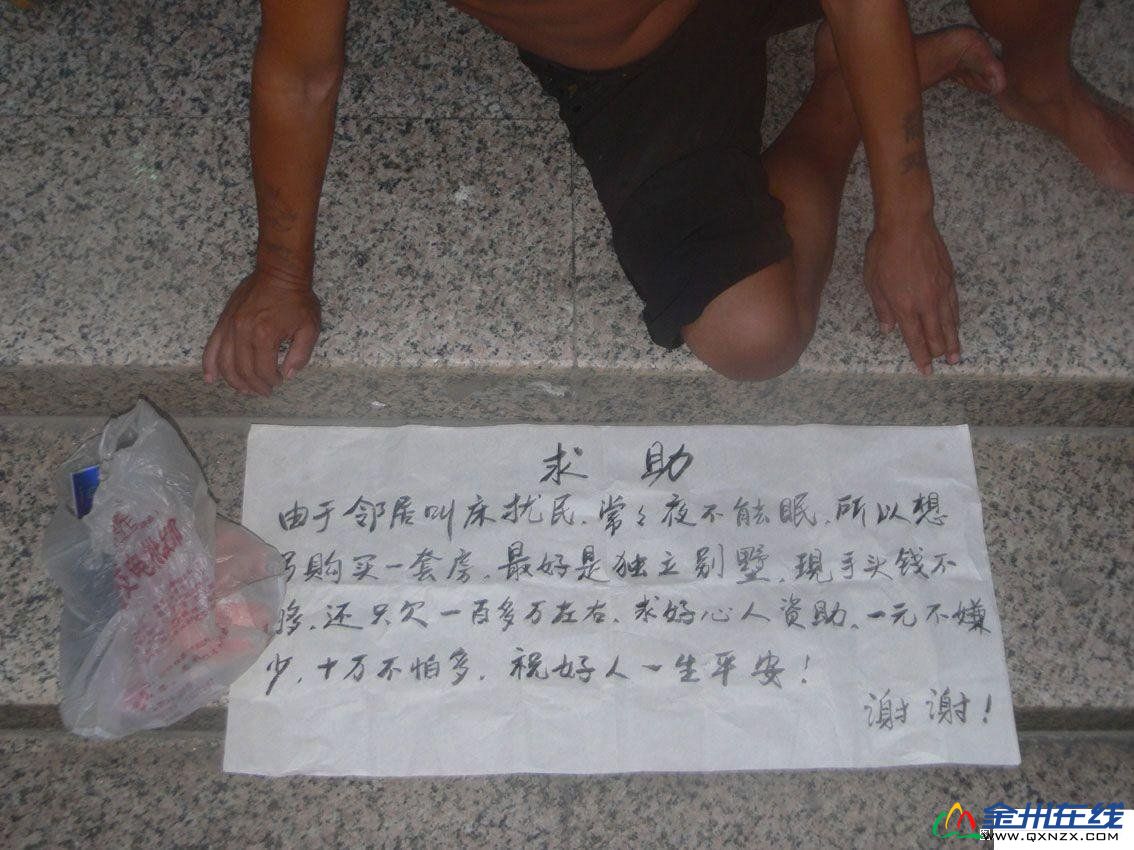 求助
由于邻居叫床扰民、常々夜不能眠、所以想
另购买一套房、最好是独立别墅、现手头钱不
够、还只欠一百多万左右、求好心人资助、一元不嫌
少，十万不怕多，祝好人一生平安！
谢谢！
金州在线
WWW.QXNZX.COM